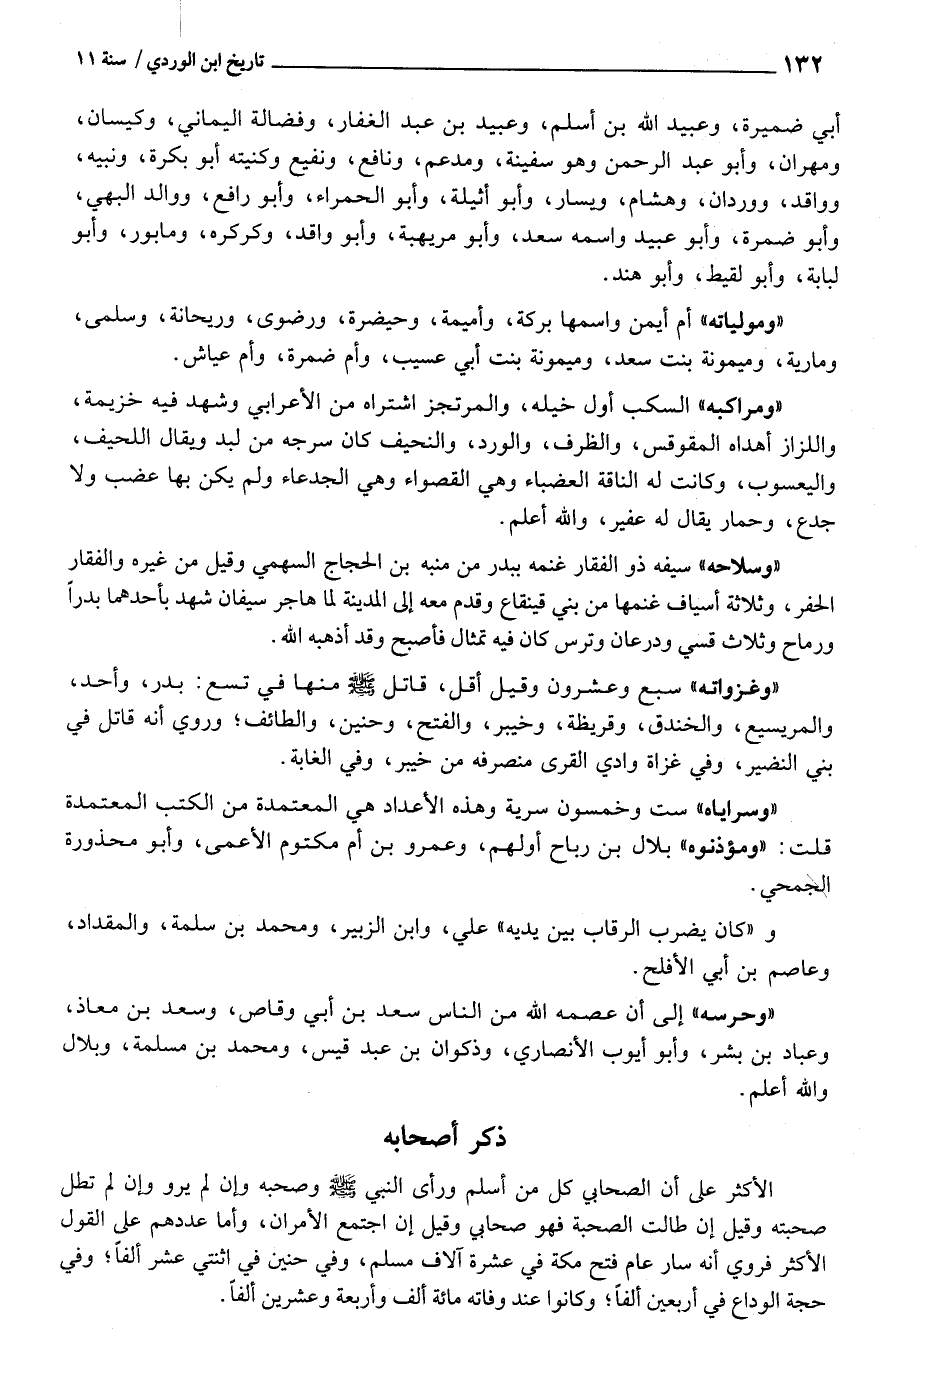 ١٣٢ تاريخ ابن الوردي / سنة ١١
أبي ضميرة، وعبيد الله بن أسلم، وعبيد بن عبد الغفار، وفضالة اليماني، وكيسان،
ومهران، وأبو عبد الرحمن وهو سفينة، ومدعم، ونافع، ونفيع وكنيته أبو بكرة، ونبيه،
وواقد، ووردان، وهشام، ويسار، وأبو أثيلة، وأبو الحمراء، وأبو رافع، ووالد البهي،
وأبو ضمرة، وأبو عبيد واسمه سعد، وأبو مريهبة، وأبو واقد، وكركره، ومابور، وأبو
لبابة، وأبو لقيط، وأبو هند.
«ومولياته» أم أيمن واسمها بركة، وأميمة، وحيضرة، ورضوى، وريحانة، وسلمى،
ومارية، وميمونة بنت سعد، وميمونة بنت أبي عسيب، وأم ضمرة، وأم عياش.
«ومراكبه» السكب أول خيله، والمرتجز اشتراه من الأعرابي وشهد فيه خزيمة،
واللزاز أهداه المقوقس، والظرف، والورد، والنحيف كان سرجه من لبد ويقال اللحيف،
واليعسوب، وكانت له الناقة العضباء وهي القصواء وهي الجدعاء ولم يكن بها عضب ولا
جدع، وحمار يقال له عفير، والله أعلم.
«وسلاحه» سيفه ذو الفقار غنمه ببدر من منبه بن الحجاج السهمي وقيل من غيره والفقار
الحفر، وثلاثة أسياف غنمها من بني قينقاع وقدم معه إلى المدينة لما هاجر سيفان شهد بأحدهما بدراً
ورماح وثلاث قسي ودرعان وترس كان فيه تمثال فأصبح وقد أذهبه الله.
«وغزواته» سبع وعشرون وقيل أقل، قاتل ﷺ منها في تسع: بدر، وأحد،
والمريسيع، والخندق، وقريظة، وخيبر، والفتح، وحنين، والطائف؛ وروي أنه قاتل في
بني النضير، وفي غزاة وادي القرى منصرفه من خيبر، وفي الغابة.
«وسراياه» ست وخمسون سرية وهذه الأعداد هي المعتمدة من الكتب المعتمدة
قلت: «ومؤذنوه» بلال بن رباح أولهم، وعمرو بن أم مكتوم الأعمى، وأبو محذورة
الجمحي.
و «كان يضرب الرقاب بين يديه» علي، وابن الزبير، ومحمد بن سلمة، والمقداد،
وعاصم بن أبي الأفلح.
«وحرسه» إلى أن عصمه الله من الناس سعد بن أبي وقاص، وسعد بن معاذ،
وعباد بن بشر، وأبو أيوب الأنصاري، وذكوان بن عبد قيس، ومحمد بن مسلمة، وبلال
والله أعلم.
ذكر أصحابه
الأكثر على أن الصحابي كل من أسلم ورأى النبي ﷺ وصحبه وإن لم يرو وإن لم تطل
صحبته وقيل إن طالت الصحبة فهو صحابي وقيل إن اجتمع الأمران، وأما عددهم على القول
الأكثر فروي أنه سار عام فتح مكة في عشرة آلاف مسلم، وفي حنين في اثنتي عشر ألفاً؛ وفي
حجة الوداع في أربعين ألفاً؛ وكانوا عند وفاته مائة ألف وأربعة وعشرين ألفاً.